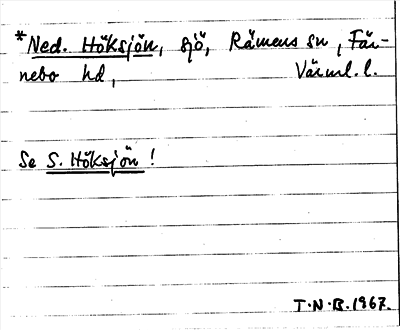 *Ned. Höksjön, sjö, Rämens sn, Fär-
nebo hd, Värml. l.
Se S. Höksjön !
T.N.B. 1967.